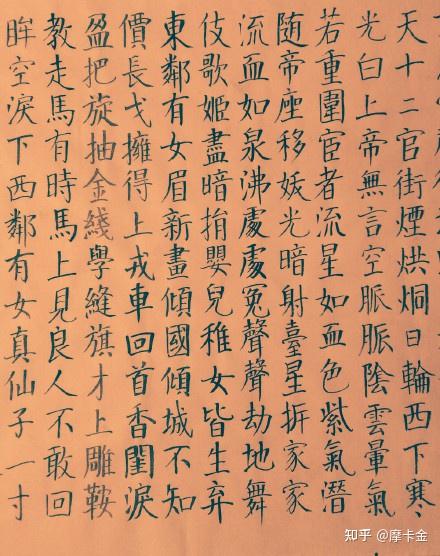 天十二官街煙烘烔日輪西下寒
光白上帝無言空脈脈陰雲暈氣
若重圍宦者流星如血色紫氣潛
随帝座移妖光暗射臺星拆家家
流血如泉沸處處冤聲聲劫地舞
伎歌姬盡暗捐嬰兒稚女皆生弃
東鄰有女眉新畫傾國傾城不知
價長戈擁得上戎車回首香閨淚
盈把旋抽金綫學縫旗才上雕鞍
教走馬有時馬上見良人不敢回
眸空淚下西鄰有女真仙子一寸
知乎 @摩卡金